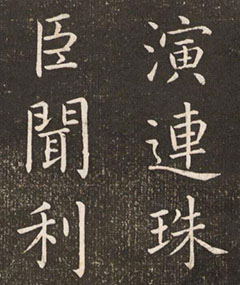 演連珠
臣聞利